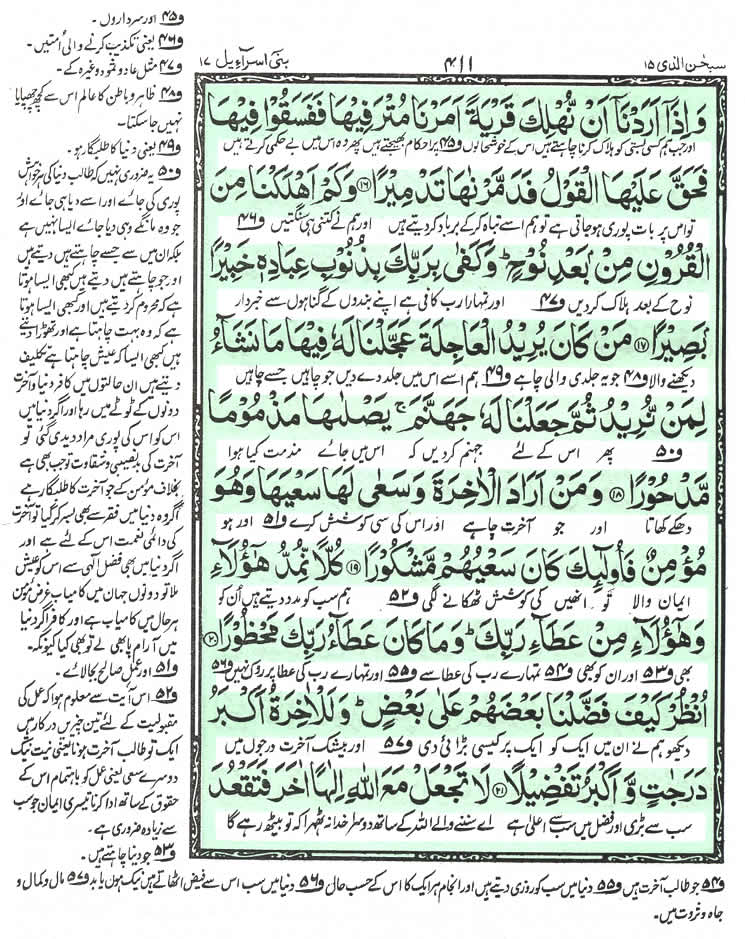 سبحٰن الذی ۱۵
۴۱۱
بنی اسرآءیل ۱۷
وَاِذَاۤ اَرَدْنَاۤ اَنْ نُّهْلِكَ قَرْیَةً اَمَرْنَا مُتْرَفِیْهَا فَفَسَقُوْا فِیْهَا
اور جب ہم کسی بستی کو ہلاک کرنا چاہتے ہیں اس کے خوشحالوں ف۴۵ پر احکام بھیجتے ہیں پھر وہ اس میں بے حکمی کرتے ہیں
فَحَقَّ عَلَیْهَا الْقَوْلُ فَدَمَّرْنٰهَا تَدْمِیْرًا ۱۶ وَكَمْ اَهْلَكْنَا مِنَ
تو اس پر بات پوری ہو جاتی ہے تو ہم اسے تباہ کر کے برباد کر دیتے ہیں اور ہم نے کتنی ہی سنگتیں ف۴۶
الْقُرُوْنِ مِنْۢ بَعْدِ نُوْحٍ ؕ وَكَفٰی بِرَبِّكَ بِذُنُوْبِ عِبَادِهٖ خَبِیْرًۢا
نوح کے بعد ہلاک کر دیں ف۴۷ اور تمہارا رب کافی ہے اپنے بندوں کے گناہوں سے خبردار
بَصِیْرًا ۱۷ مَنْ كَانَ یُرِیْدُ الْعَاجِلَةَ عَجَّلْنَا لَهٗ فِیْهَا مَا نَشَآءُ
دیکھنے والا ف۴۸ جو یہ جلدی والی چاہے ف۴۹ ہم اسے اس میں جلد دے دیں جو چاہیں جسے چاہیں
لِمَنْ نُّرِیْدُ ثُمَّ جَعَلْنَا لَهٗ جَهَنَّمَ ۚ یَصْلٰىهَا مَذْمُوْمًا
ف۵۰ پھر اس کے لئے جہنم کر دیں کہ اس میں جائے مذمت کیا ہوا
مَّدْحُوْرًا ۱۸ وَمَنْ اَرَادَ الْاٰخِرَةَ وَسَعٰی لَهَا سَعْیَهَا وَهُوَ
دھکے کھاتا اور جو آخرت چاہے اور اس کی سی کوشش کرے ف۵۱ اور ہو
مُؤْمِنٌ فَاُولٰٓىِٕكَ كَانَ سَعْیُهُمْ مَّشْكُوْرًا ۱۹ كُلًّا نُّمِدُّ هٰۤؤُلَآءِ
ایمان والا تو انھیں کی کوشش ٹھکانے لگی ف۵۲ ہم سب کو مدد دیتے ہیں اُن کو
وَهٰۤؤُلَآءِ مِنْ عَطَآءِ رَبِّكَ ؕ وَمَا كَانَ عَطَآءُ رَبِّكَ مَحْظُوْرًا ۲۰
بھی ف۵۳ اور ان کو بھی ف۵۴ تمہارے رب کی عطا سے ف۵۵ اور تمہارے رب کی عطا پر روک نہیں ف۵۶
اُنْظُرْ كَیْفَ فَضَّلْنَا بَعْضَهُمْ عَلٰی بَعْضٍ ؕ وَلَلْاٰخِرَةُ اَكْبَرُ
دیکھو ہم نے ان میں ایک کو ایک پر کیسی بڑائی دی ف۵۷ اور بیشک آخرت درجوں میں
دَرَجٰتٍ وَّاَكْبَرُ تَفْضِیْلًا ۲۱ لَا تَجْعَلْ مَعَ اللّٰهِ اِلٰهًا اٰخَرَ فَتَقْعُدَ
سب سے بڑی اور فضل میں سب سے اعلیٰ ہے اے سننے والے اللہ کے ساتھ دوسرا خدا نہ ٹھہرا کہ تو بیٹھ رہے گا
ف۴۵ اور سرداروں۔
ف۴۶ یعنی تکذیب کرنے والی اُمتیں۔
ف۴۷ مثل عاد و ثمود وغیرہ کے۔
ف۴۸ ظاہر و باطن کا عالم اس سے کچھ چھپایا
نہیں جا سکتا۔
ف۴۹ یعنی دنیا کا طلبگار ہو۔
ف۵۰ یہ ضروری نہیں کہ طالب دنیا کی ہر خواہش
پوری کی جائے اور اسے دیا ہی جائے اور
جو وہ مانگے وہی دیا جائے ایسا نہیں ہے
بلکہ ان میں سے جسے چاہتے ہیں دیتے ہیں
اور جو چاہتے ہیں دیتے ہیں کبھی ایسا ہوتا
ہے کہ محروم کر دیتے ہیں اور کبھی ایسا ہوتا
ہے کہ وہ بہت چاہتا ہے اور تھوڑا دیتے
ہیں کبھی ایسا کہ عیش چاہتا ہے تکلیف
دیتے ہیں ان حالتوں میں کافر دنیا و آخرت
دونوں کے ٹوٹے میں رہا اور اگر دنیا میں
اس کو اس کی پوری مراد دیدی گئی تو
آخرت کی بدنصیبی و شقاوت تو جب بھی ہے
بخلاف مومن کے جو آخرت کا طلبگار ہے
اگر وہ دنیا میں فقر سے بھی بسر کر گیا تو آخرت
کی دائمی نعمت اس کے لئے ہے اور
اگر دنیا میں بھی فضل الٰہی سے اس کو عیش
ملا تو دونوں جہان میں کامیاب غرض مومن
ہر حال میں کامیاب ہے اور کافر اگر دنیا
میں آرام پا بھی لے تو بھی کیا کیونکہ۔
ف۵۱ اور عمل صالح بجا لائے۔
ف۵۲ اس آیت سے معلوم ہوا کہ عمل کی
مقبولیت کے لئے تین چیزیں درکار ہیں
ایک تو طالب آخرت ہونا یعنی نیت نیک
دوسرے سعی یعنی عمل کو باہتمام اس کے
حقوق کے ساتھ ادا کرنا تیسری ایمان جو سب
سے زیادہ ضروری ہے۔
ف۵۳ جو دنیا چاہتے ہیں۔
ف۵۴ جو طالب آخرت ہیں ف۵۵ دنیا میں سب کو روزی دیتے ہیں اور انجام ہر ایک کا اس کے حسب حال ف۵۶ دنیا میں سب اس سے فیض اٹھاتے ہیں نیک ہوں یا بد ف۵۷ مال و کمال و
جاہ و ثروت میں۔